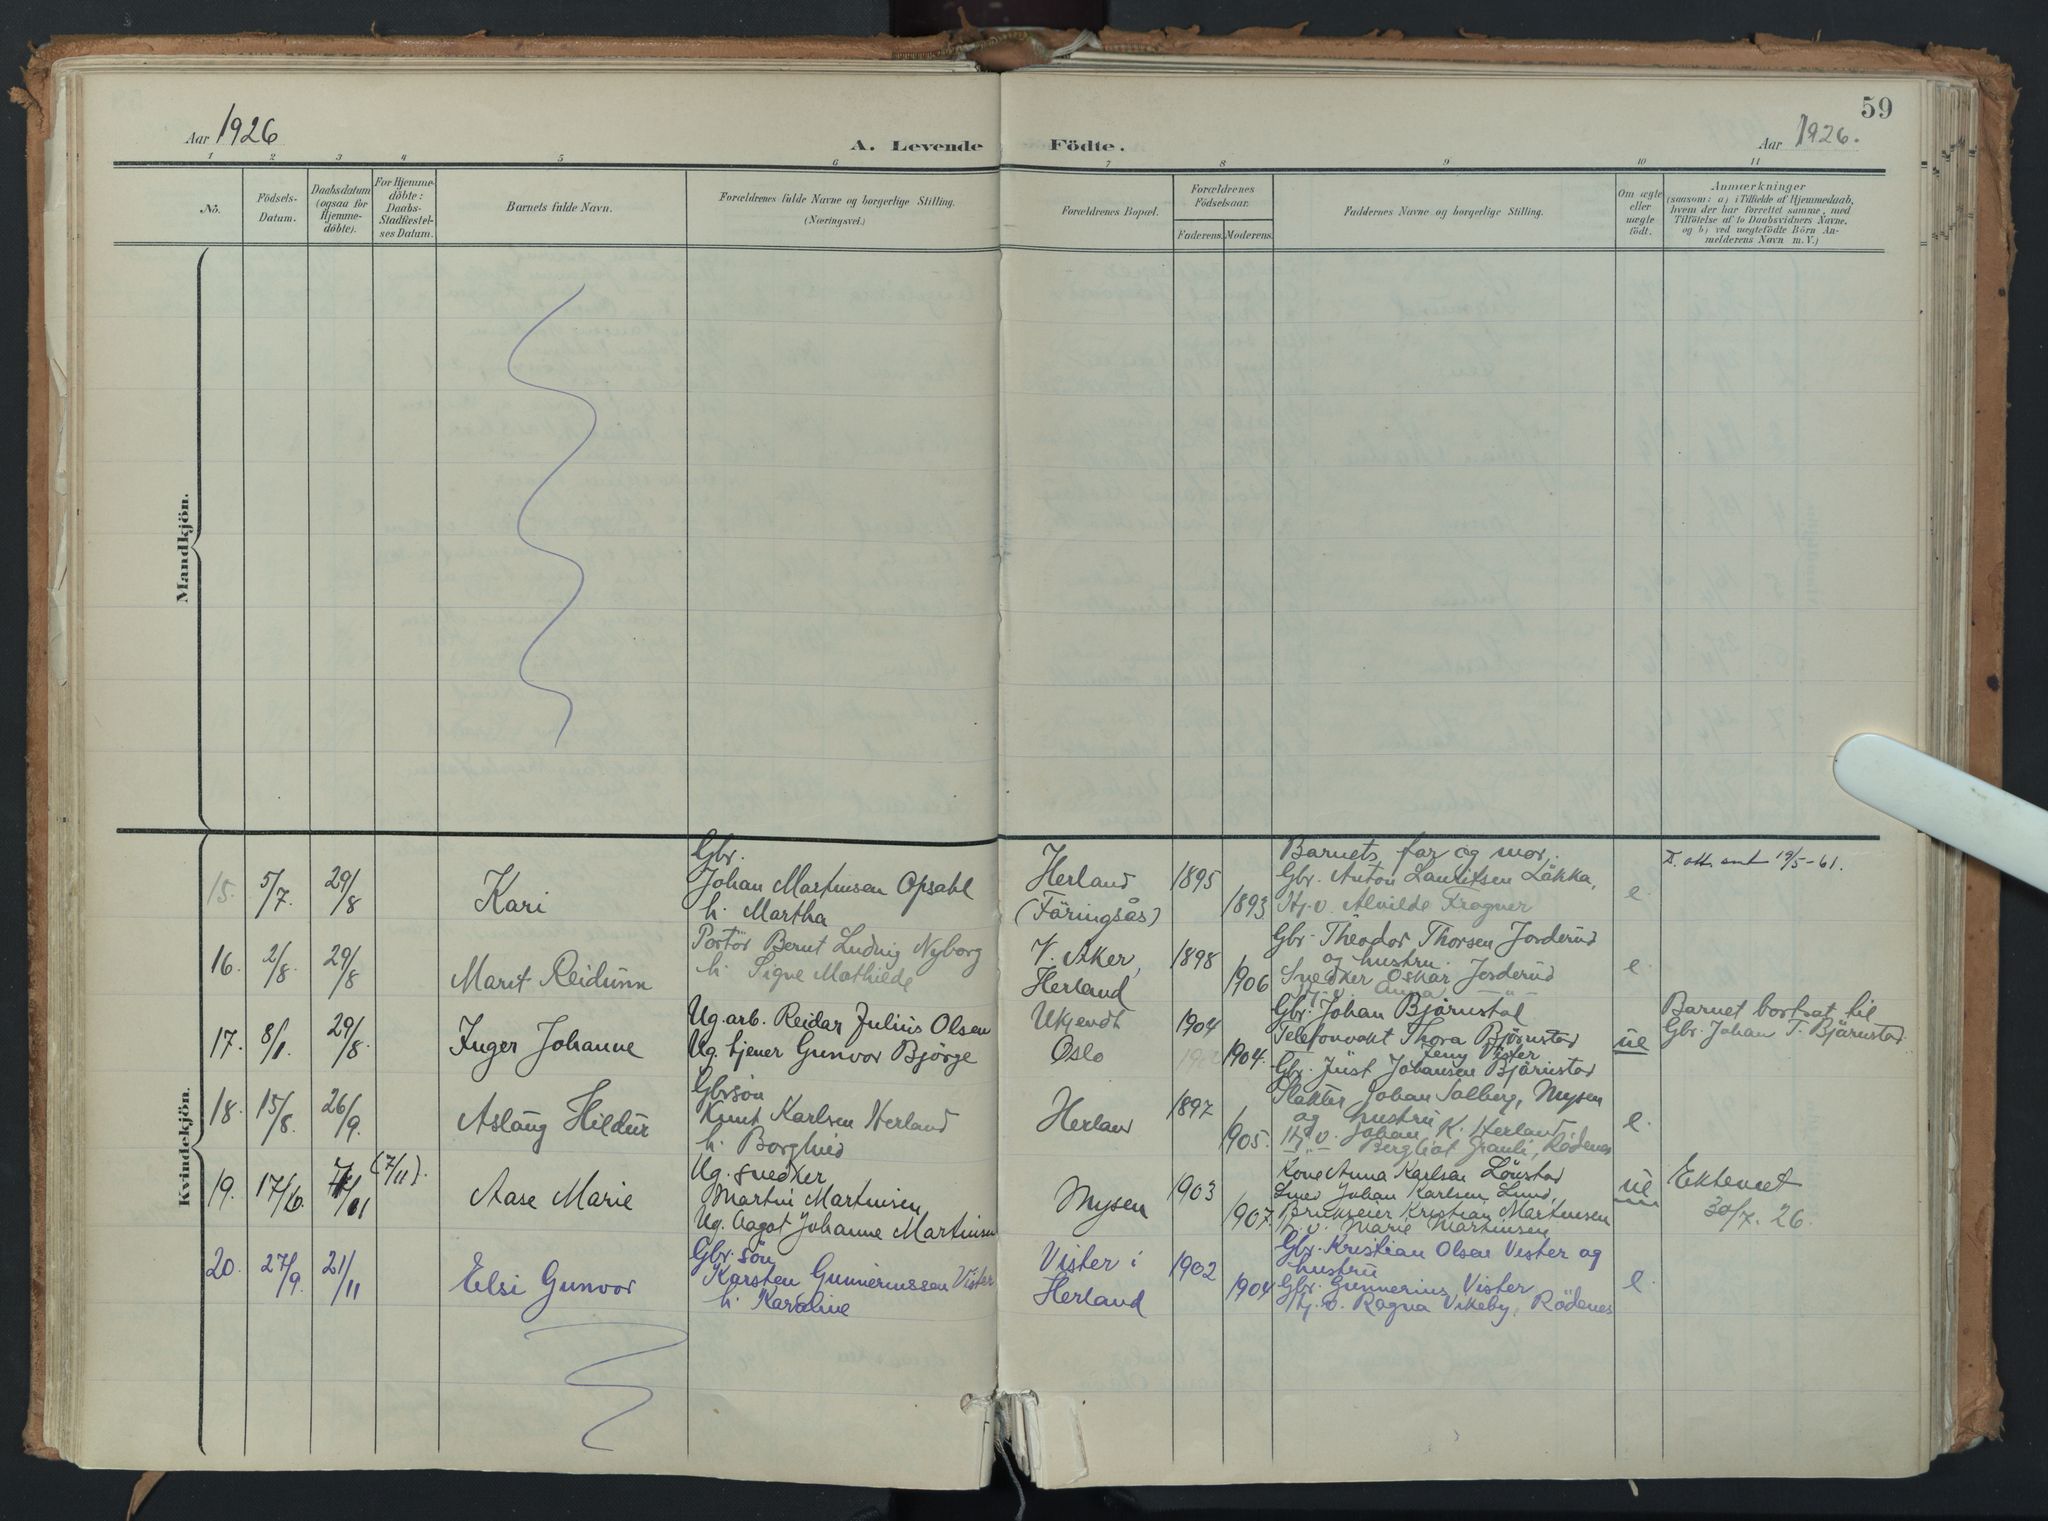 59
Aar 1926
A. Levende Födte.
Aar 1926.
1 2 3 4 5 6 7 8 9 10 11
No.
Födsels-
Datum.
Daabsdatum
(ogsaa for
Hjemme-
döbte).
For Hjemme-
döbte:
Daabs-
Stadfæstel-
ses Datum.
Barnets fulde Navn.
Forældrenes fulde Navne og borgerlige Stilling.
(Næringsvei.)
Forældrenes Bopæl.
Forældrenes
Födselsaar.
Faderens. Moderens.
Faddernes Navne og borgerlige Stilling.
Om ægte
eller
uægte
födt.
Anmærkninger
(saasom: a) i Tilfælde af Hjemmedaab,
hvem der har forrettet samme, med
Tilföielse af to Daabsvidners Navne,
og b) ved uægtefödte Börn An-
melderens Navn m. V.)
Mandkjön.
Kvindekjön.
15. 5/7. 29/8
Kari
Gbr.
Johan Martinsen Opsahl
h. Martha
Herland
(Färingsås)
1895
1893
Barnets far og mor.
Gbr. Anton Lauritsen Läkka,
Hj.v. Alvilde Fragner
e.
D. att. sent 19/5-61.
16. 2/8. 29/8
Marit Reidunn
Portör Bernt Ludvig Nyborg
h. Signe Mathilde
V. Aker,
Herland
1898
1906
Gbr. Theodor Thorsen Jorderud
og hustru.
Snedker Oskar Jorderud
Hj.v. Anna —"—
e.
17. 8/1. 29/8.
Inger Johanne
Ug. arb. Reidar Julius Olsen
Ug. tjener Gunvor Björge
Ukjendt
Oslo
1904
1904.
Gbr. Johan Björnstad
Telefonvakt Thora Björnstad
Jenny Vister
Gbr. Just Johansen Björnstad
ue
Barnet bortsat til
Gbr. Johan T. Björnstad
18. 15/8. 26/9.
Aslaug Hildur
Gbrsön
Knut Karlsen Herland
h. Borghild
Herland
1897
1905.
Slakter Johan Solberg, Mysen
og hustru
Hj.v. Johan K. Herland,
—"— Bergliot Granli, Rödenes
e.
19. 17/6. 7/11 (7/11).
Aase Marie
Ug. snedker
Martin Martinsen
Ug. Aagot Johanne Martinsen
Mysen
1903
1907.
Kone Anna Karlsen Lönstad
Smed Johan Karlsen Lund,
Brukseier Kristian Martinsen
Hj.v. Marie Martinsen
ue
Ektevet
30/7. 26.
20. 27/9. 21/11
Elsi Gunvor
Gbr. sön
Karsten Gunneriussen Vister
h. Karoline
Vister i
Herland
1902
1904
Gbr. Kristian Olsen Vister og
hustru
Gbr. Gunnerius Vister
Hj.v. Ragna Vikeby, Rödenes
e.